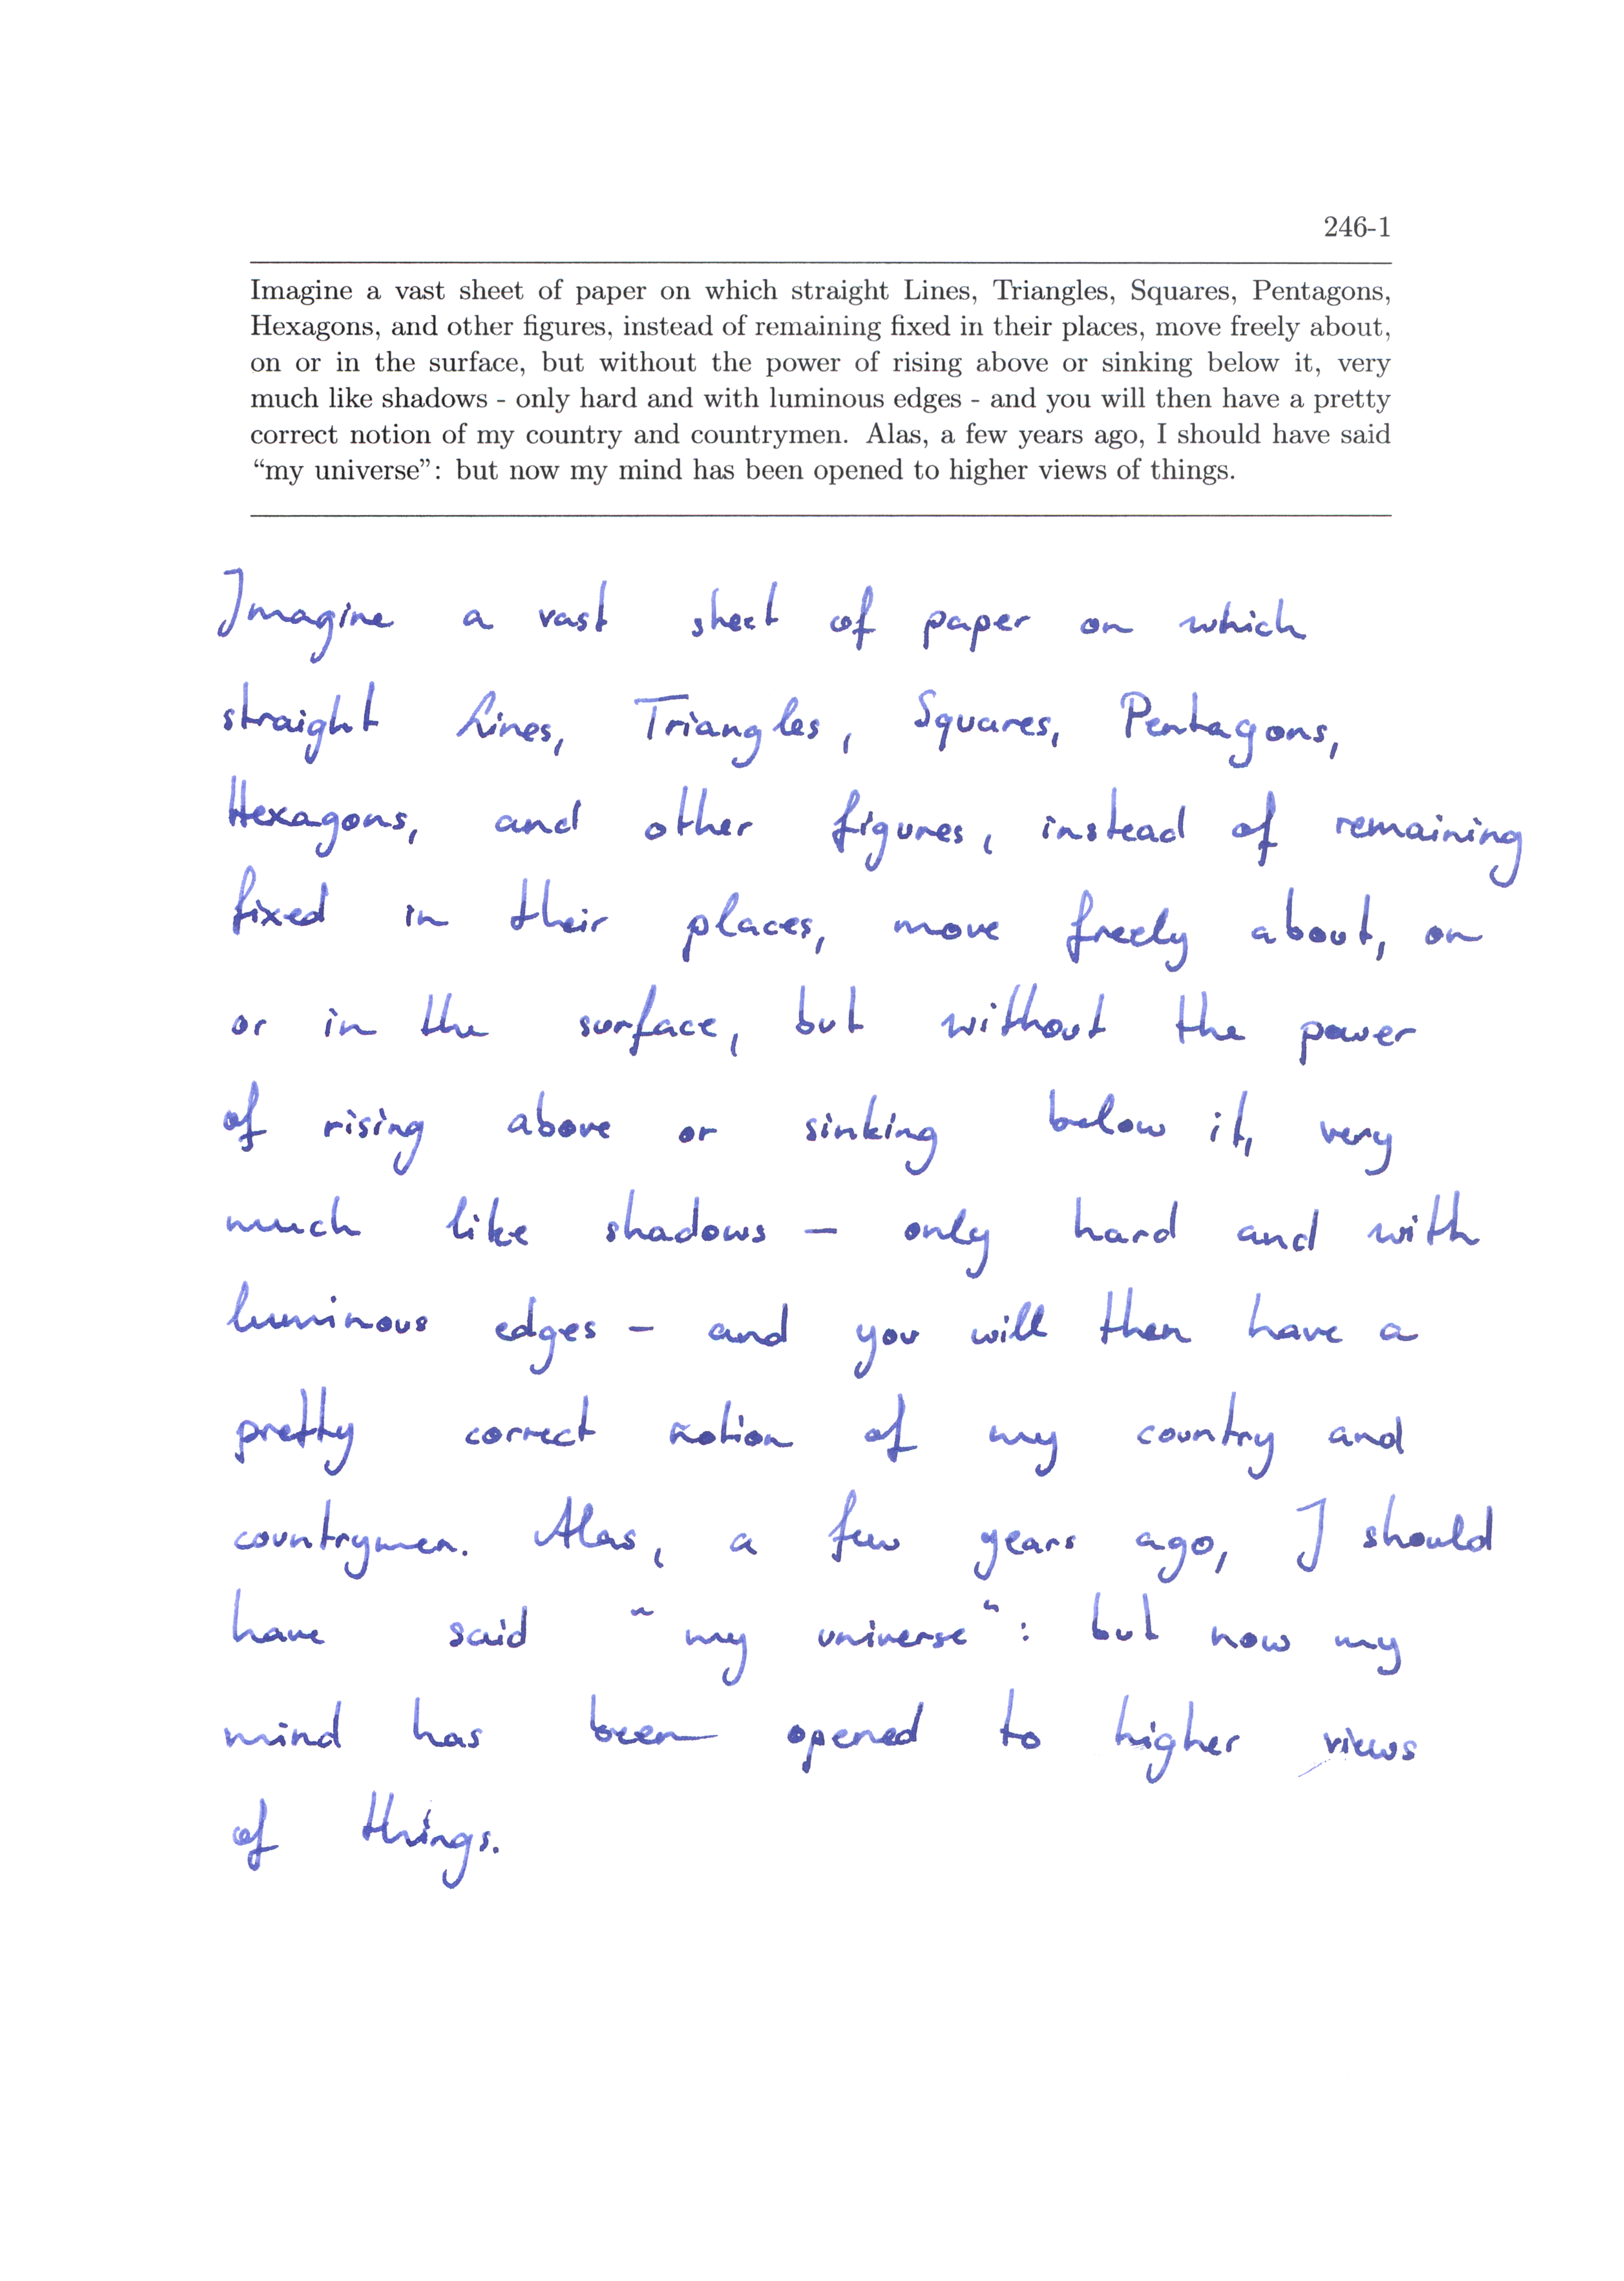 246-1
Imagine a vast sheet of paper on which straight Lines, Triangles, Squares, Pentagons,
Hexagons, and other figures, instead of remaining fixed in their places, move freely about,
on or in the surface, but without the power of rising above or sinking below it, very
much like shadows - only hard and with luminous edges - and you will then have a pretty
correct notion of my country and countrymen. Alas, a few years ago, I should have said
“my universe”: but now my mind has been opened to higher views of things.
Imagine a vast sheet of paper on which
straight Lines, Triangles, Squares, Pentagons,
Hexagons, and other figures, instead of remaining
fixed in their places, move freely about, on
or in the surface, but without the power
of rising above or sinking below it, very
much like shadows – only hard and with
luminous edges – and you will then have a
pretty correct notion of my country and
countrymen. Alas, a few years ago, I should
have said “my universe”: but now my
mind has been opened to higher views
of things.